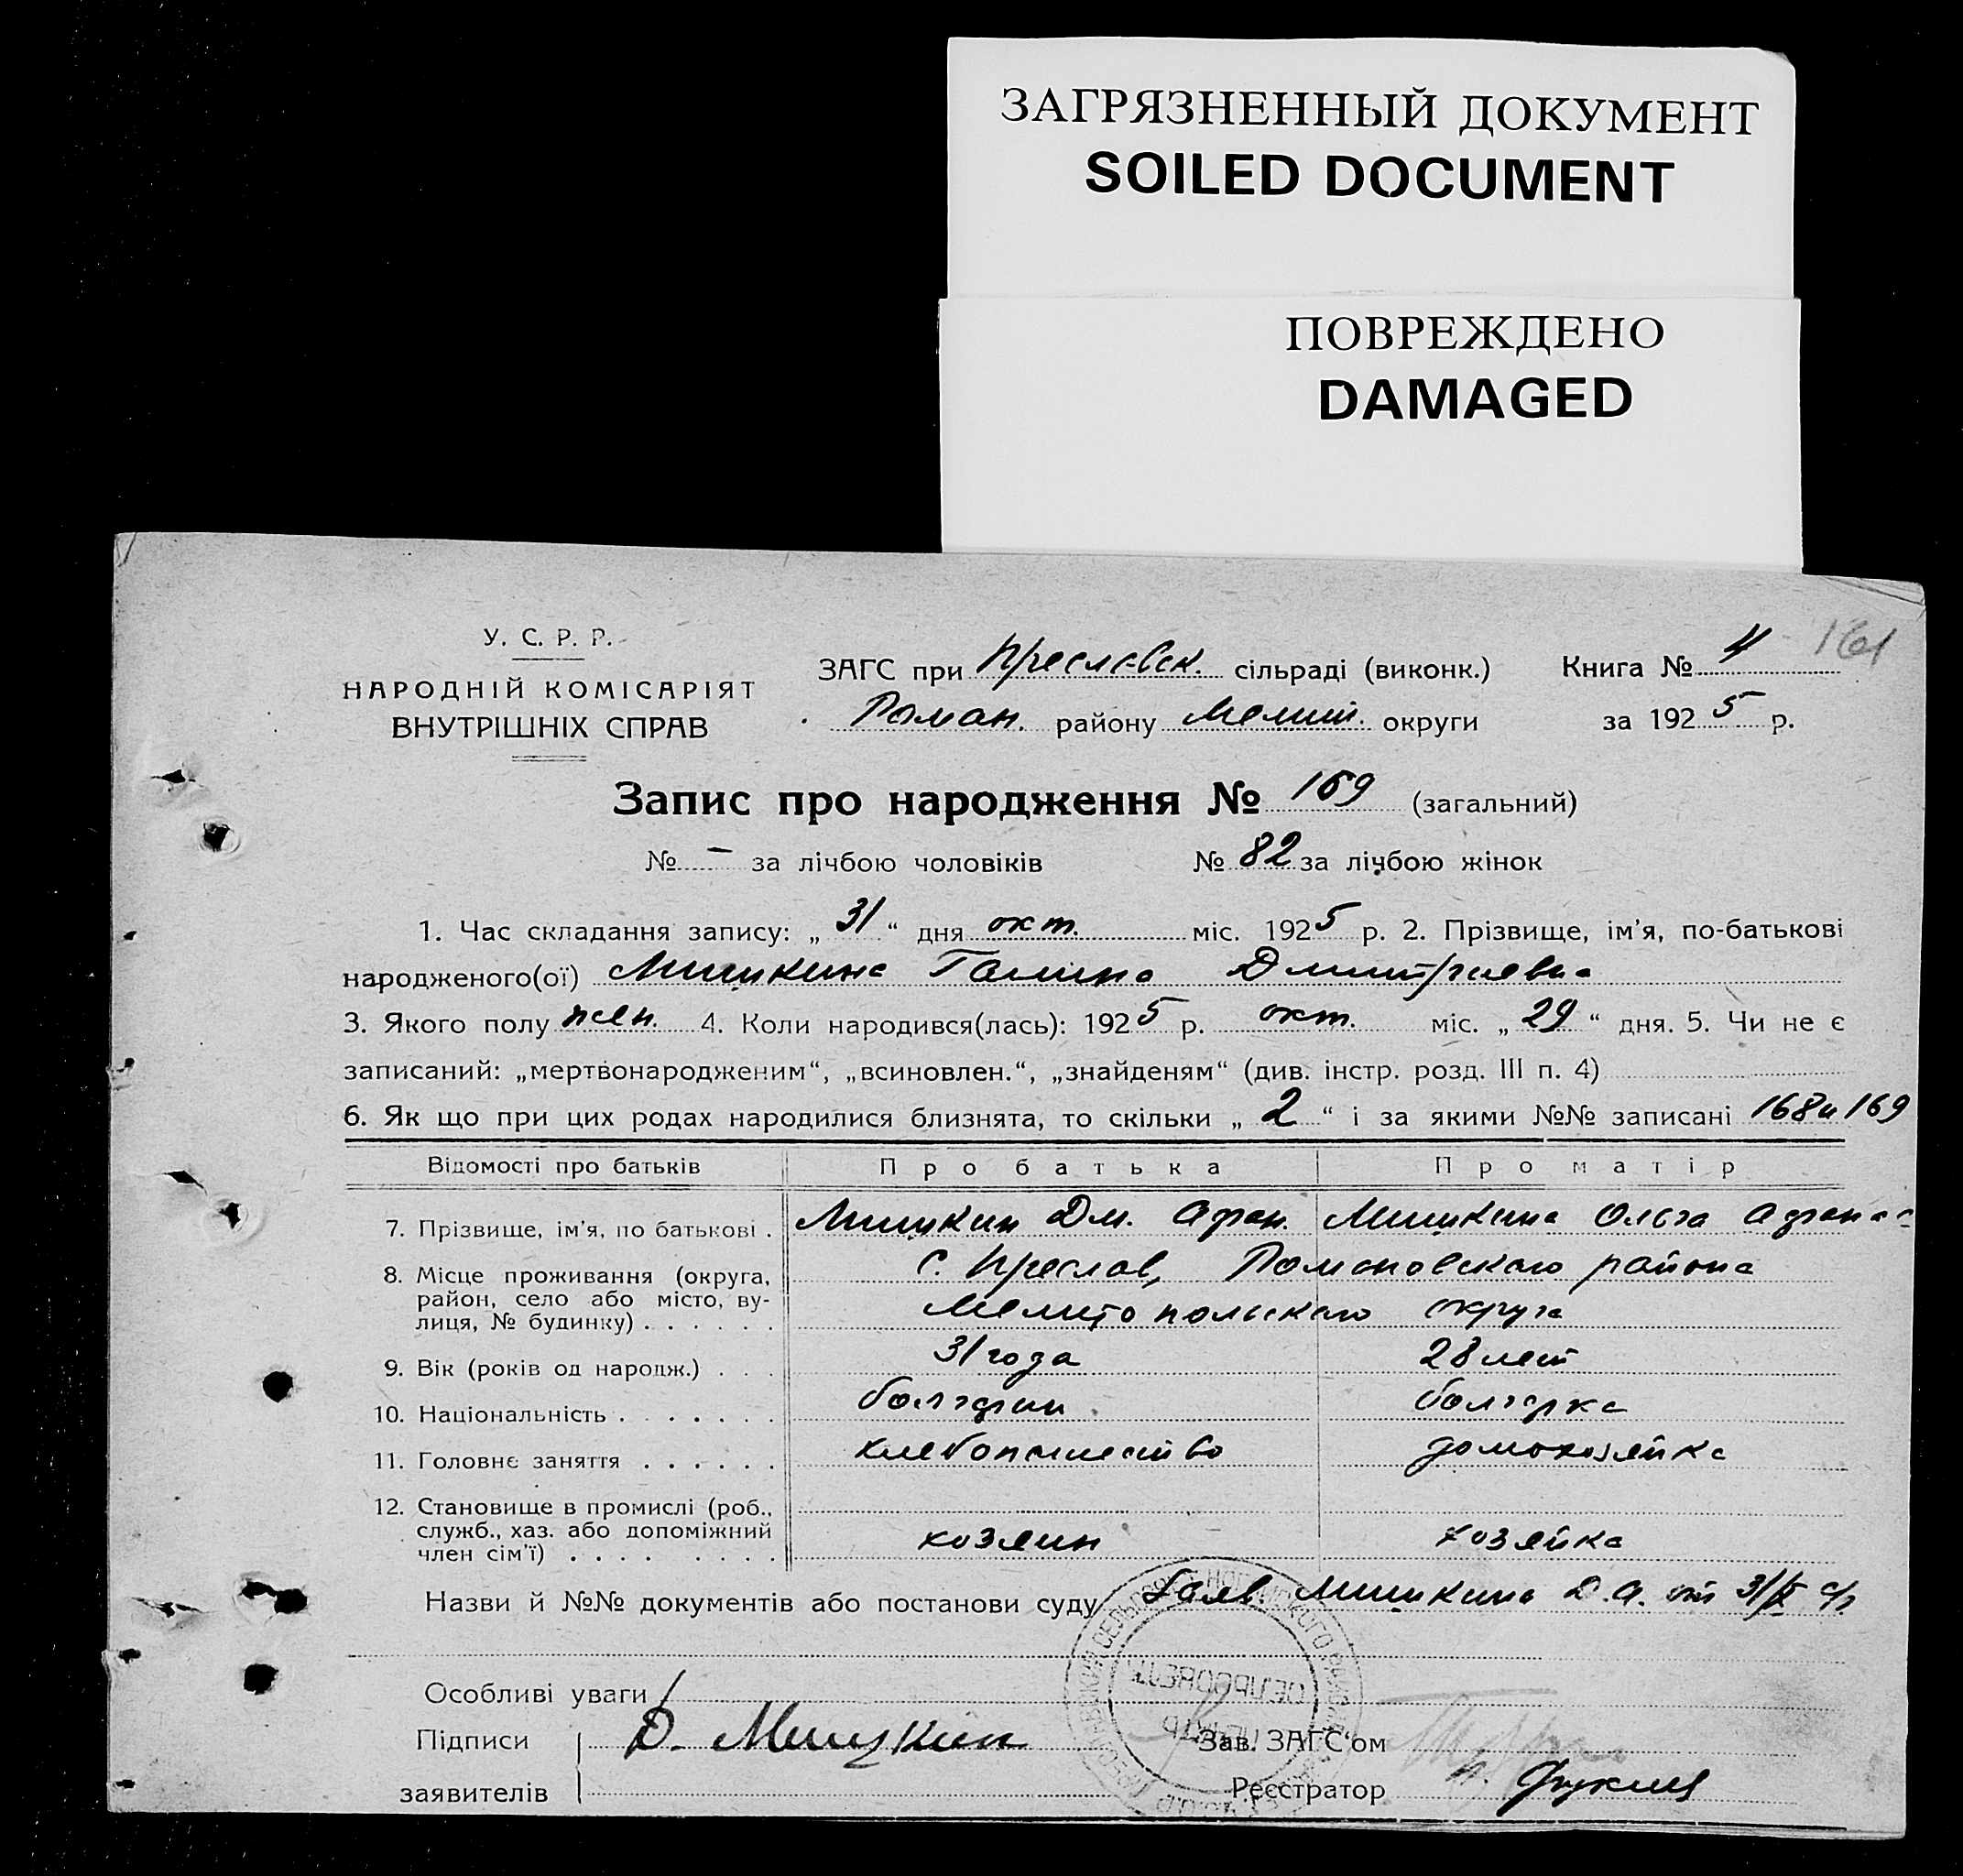 ЗАГРЯЗНЕННЫЙ ДОКУМЕНТ
SOILED DOCUMENT
ПОВРЕЖДЕНО
DAMAGED
У. С. Р. Р.
НАРОДНІЙ КОМІСАРІЯТ
ВНУТРІШНІХ СПРАВ
ЗАГС при Преславск. сільраді (виконк.) Книга № 4 161
Роман. району Мелит. округи за 1925 р.
Запис про народження № 169 (загальний)
№ – за лічбою чоловіків № 82 за лічбою жінок
1. Час складання запису: „31“ дня окт. міс. 1925 р. 2. Прізвище, ім'я, по-батькові
народженого(ої) Мишкина Галина Дмитриевна
3. Якого полу жен. 4. Коли народився(лась): 1925 р. окт. міс. „29“ дня. 5. Чи не є
записаний: „мертвонародженим“, „всиновлен.“, „знайденям“ (див. інстр. розд. III п. 4)
6. Як що при цих родах народилися близнята, то скільки „2“ і за якими №№ записані 168 и 169
Відомості про батьків Про батька Про матір
7. Прізвище, ім'я, по батькові . Мишкин Дм. Афан. Мишкина Ольга
8. Місце проживання (округа, с. Преслав, Романовского района
район, село або місто, ву-
лиця, № будинку) . . . . . . Мелитопольского округа
9. Вік (років од народж.) . . . 31 года 28 лет
10. Національність . . . . . . . болгарин болгарка
11. Головнє заняття . . . . . . хлебопашество домохозяйка
12. Становище в промислі (роб.,
служб., хаз. або допоміжний
член сім'ї) . . . . . . . . хозяин хозяйка
Назви й №№ документів або постанови суду Заяв. Мишкина Д. А. от 31/X
Особливі уваги
Підписи Д. Мишкин Зав. ЗАГС'ом
заявителів Реєстратор